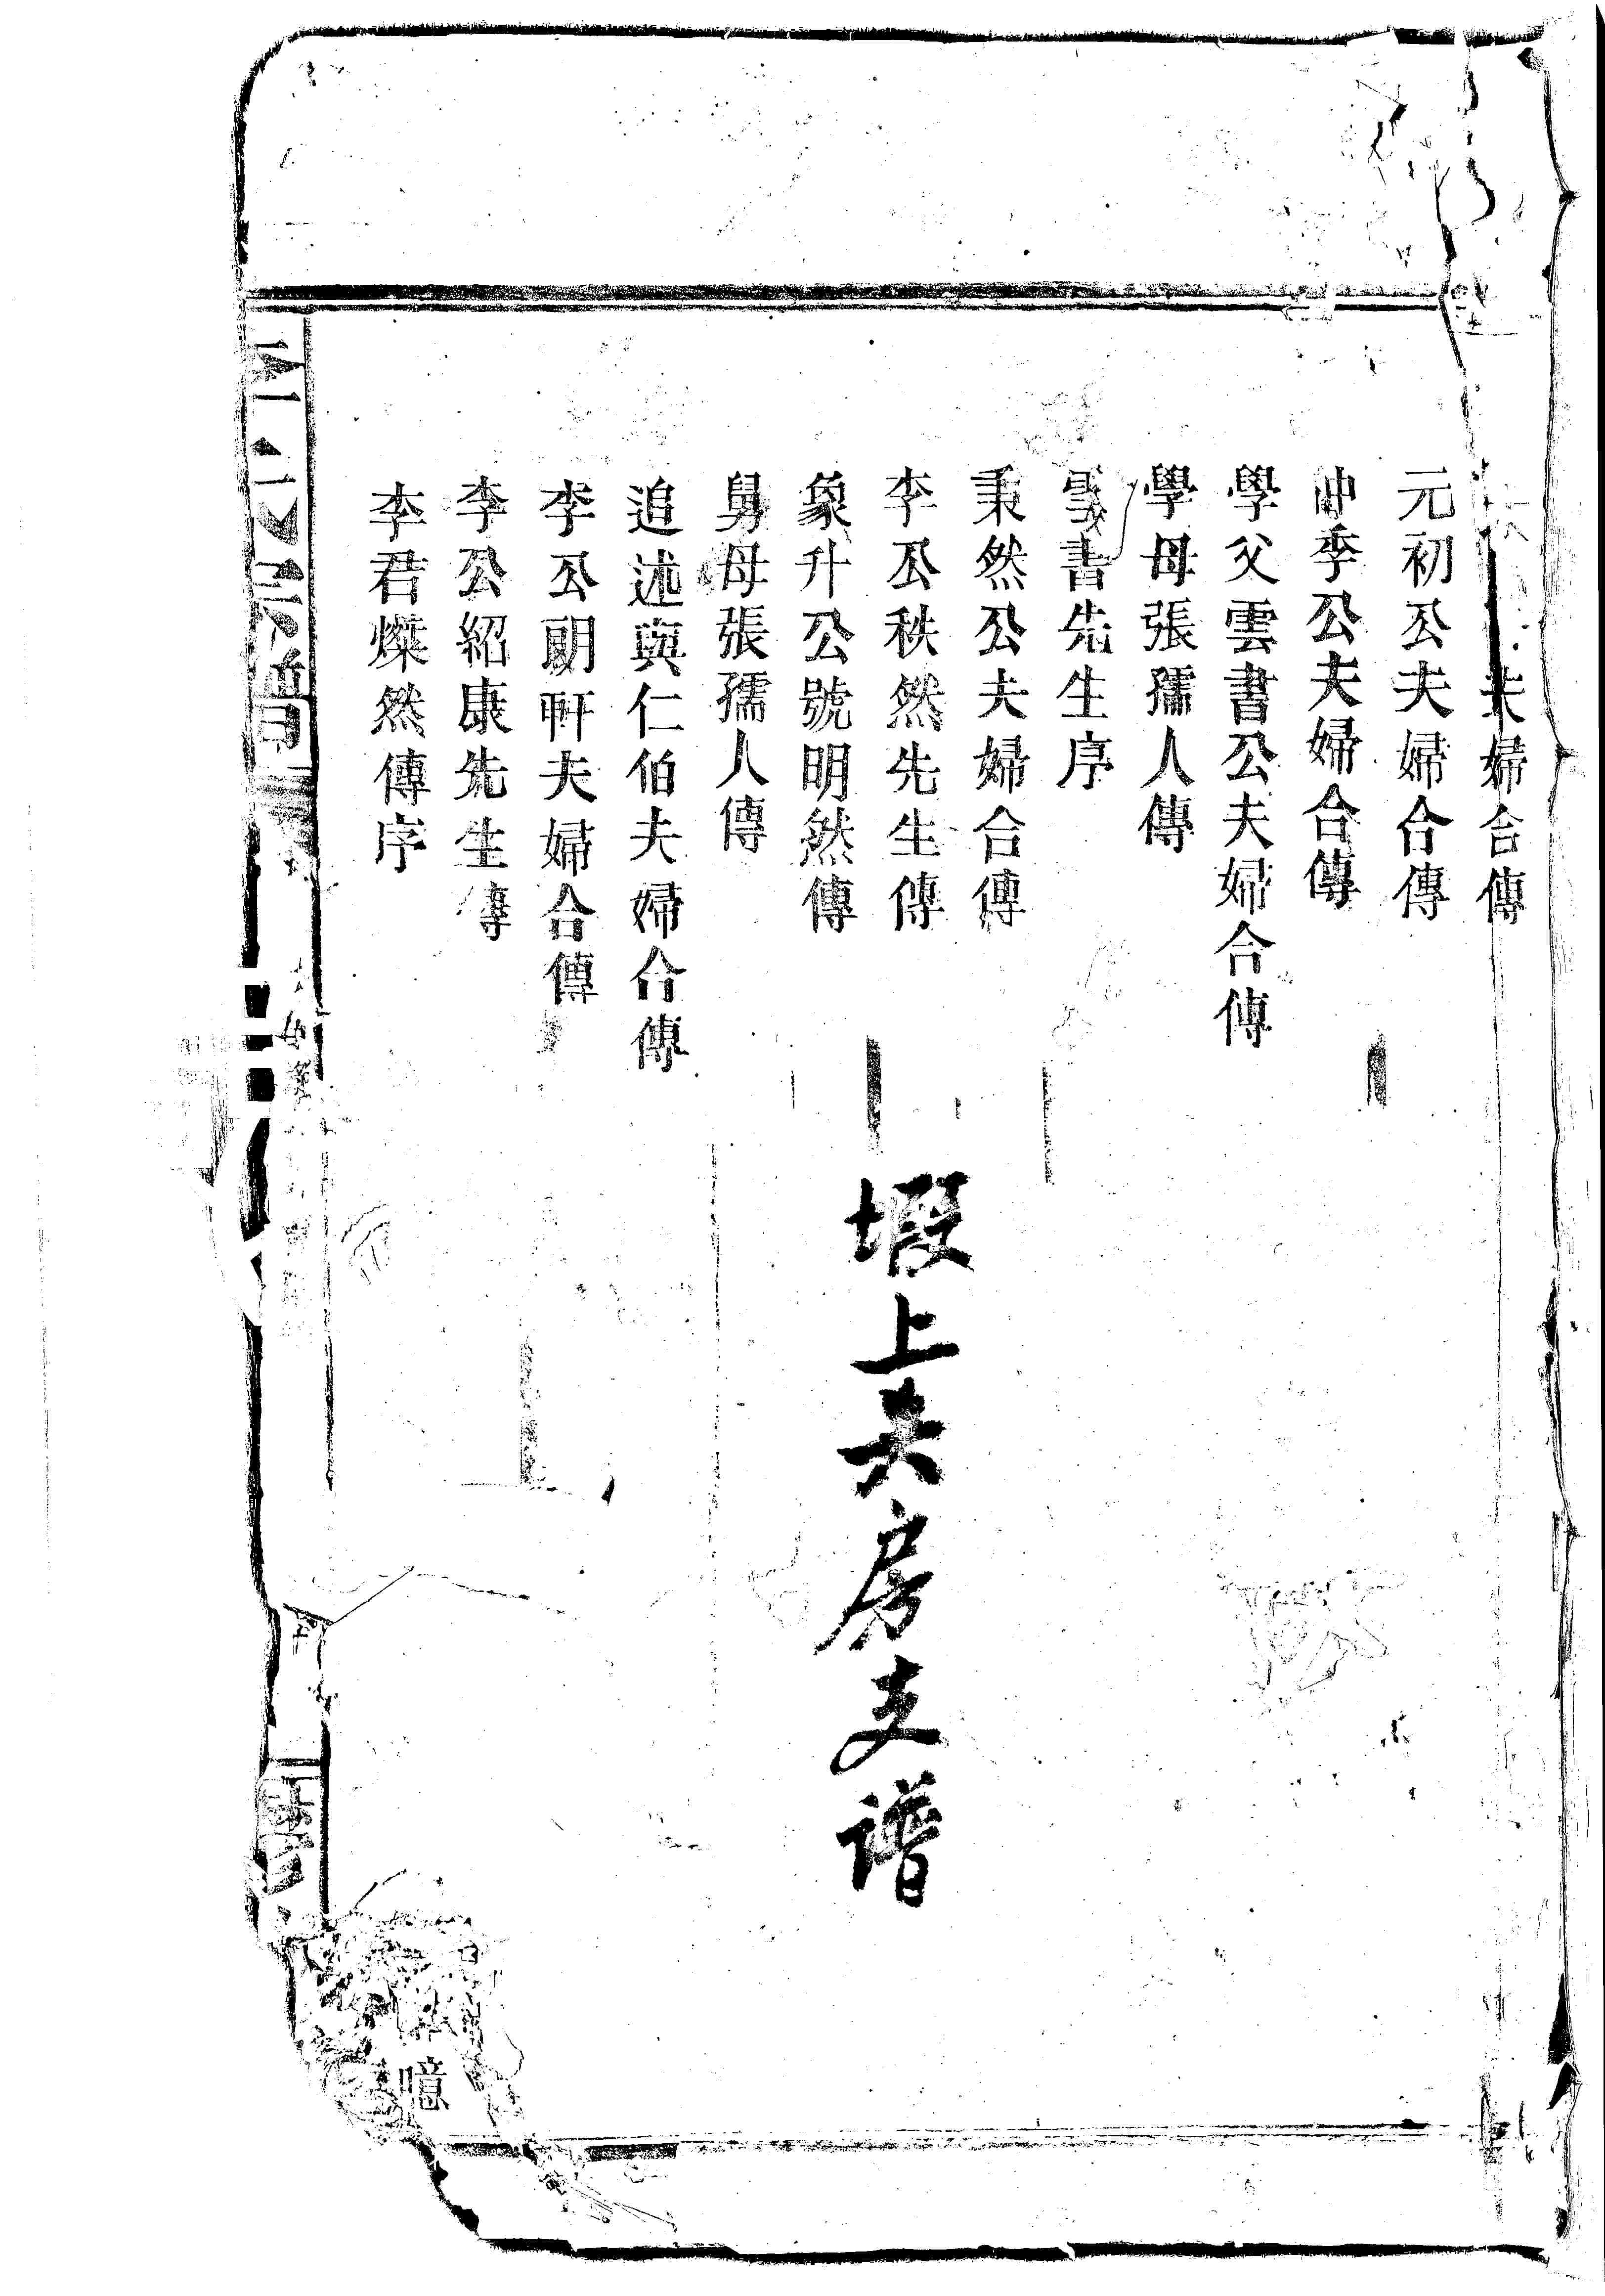 夫婦合傳
元初公夫婦合傳
仲季公夫婦合傳
學父雲書公夫婦合傳
學母張孺人傳
雲書先生序
秉然公夫婦合傳
李公秩然先生傳
象升公號明然傳
舅母張孺人傳
追述與仁伯夫婦合傳
李公朗軒夫婦合傳
李公紹康先生傳
李君燦然傳序
上共房支谱
宗譜